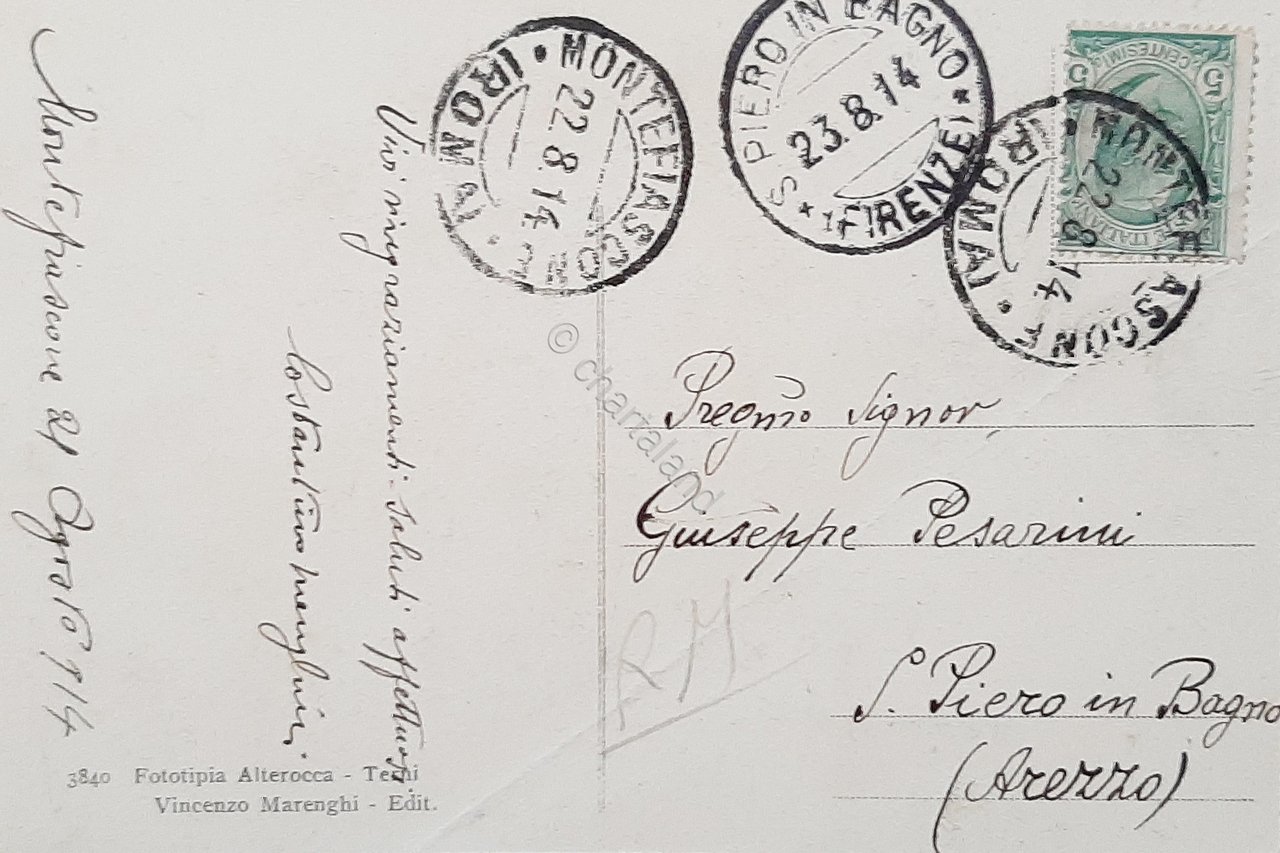 Montefiascone 21 Agosto 914
Vivi ringraziamenti. Saluti affettuosi.
Costantino
3840 Fototipia Alterocca - Terni
Vincenzo Marenghi - Edit.
MONTEFIASCONE (ROMA)
22.8.14
S. PIERO IN BAGNO (FIRENZE)
23.8.14
MONTEFIASCONE (ROMA)
22 8 14
5 CENTESIMI 5
POSTE ITALIANE
Pregmo Signor
Giuseppe Pesarini
S. Piero in Bagno
(Arezzo)
RM
© chartaland